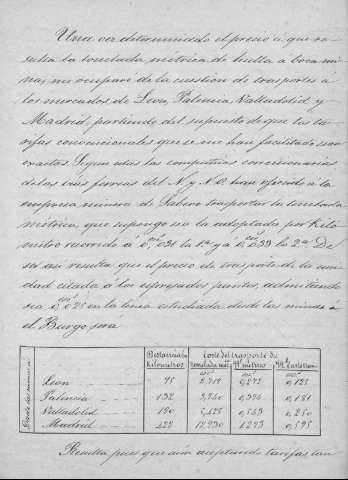 Una vez determinado el precio á que re-
sulta la tonelada métrica de hulla á boca mi-
na, me ocuparé de la cuestion de trasportes á
los mercados de Leon, Palencia, Valladolid y
Madrid, partiendo del supuesto de que las ta-
rifas convencionales que se me han facilitado sean
exactas. Segun estas las compañias concesionarias
de las vias ferreas del N. y N.O. han ofrecido á la
empresa minera de Sabero trasportar la tonelada
métrica, que supongo sea la adoptada por kiló-
metro recorrido á 0,031 la 1ª y á 0,033 la 2ª De
ser así resulta que el precio de trasporte de la uni-
dad citada á los espresados puntos, admitiendo
sea 0,025 en la linea estudiada desde las minas á
el Burgo será
Desde las minas á
Distancia en Kilómetros
Coste del trasporte de
tonelada mét.
QQ. métrico
QQ. castellano
Leon 75 2,719 0,272 0,125
Palencia 132 3,940 0,394 0,181
Valladolid 180 5,428 0,543 0,250
Madrid 422 12,930 1,293 0,595
Resulta pues que aún aceptando tarifas tan